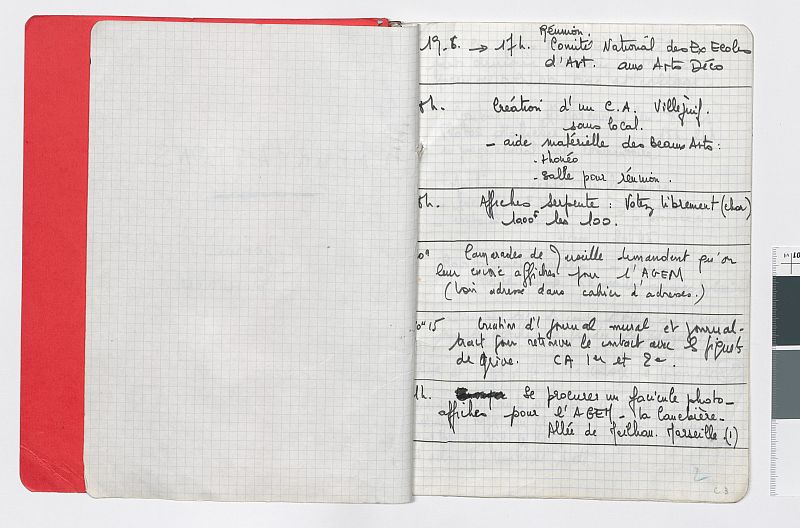 Réunion.
19.6. → 17h. Comité National des Ex Ecoles
d'Art. aux Arts Déco
8h. Création d'un C.A. Villejuif.
sans local.
- aide matérielle des Beaux Arts :
- rhonéo
- salle pour réunion.
8h. Affiches serpente : Votez librement (char)
1000F les 100.
Camarades de Marseille demandent qu'on
leur envoie affiches pour l'AGEM
(Voir adresse dans cahier d'adresses.)
15 Création d'1 journal mural et journal-
tract pour retrouver le contact avec les piquets
de grève. CA 1er et 2e.
1h. Se procurer un fascicule photo-
affiches pour l'AGEM - la Canebière -
Allée de Meilhan. Marseille (1)
2
C3